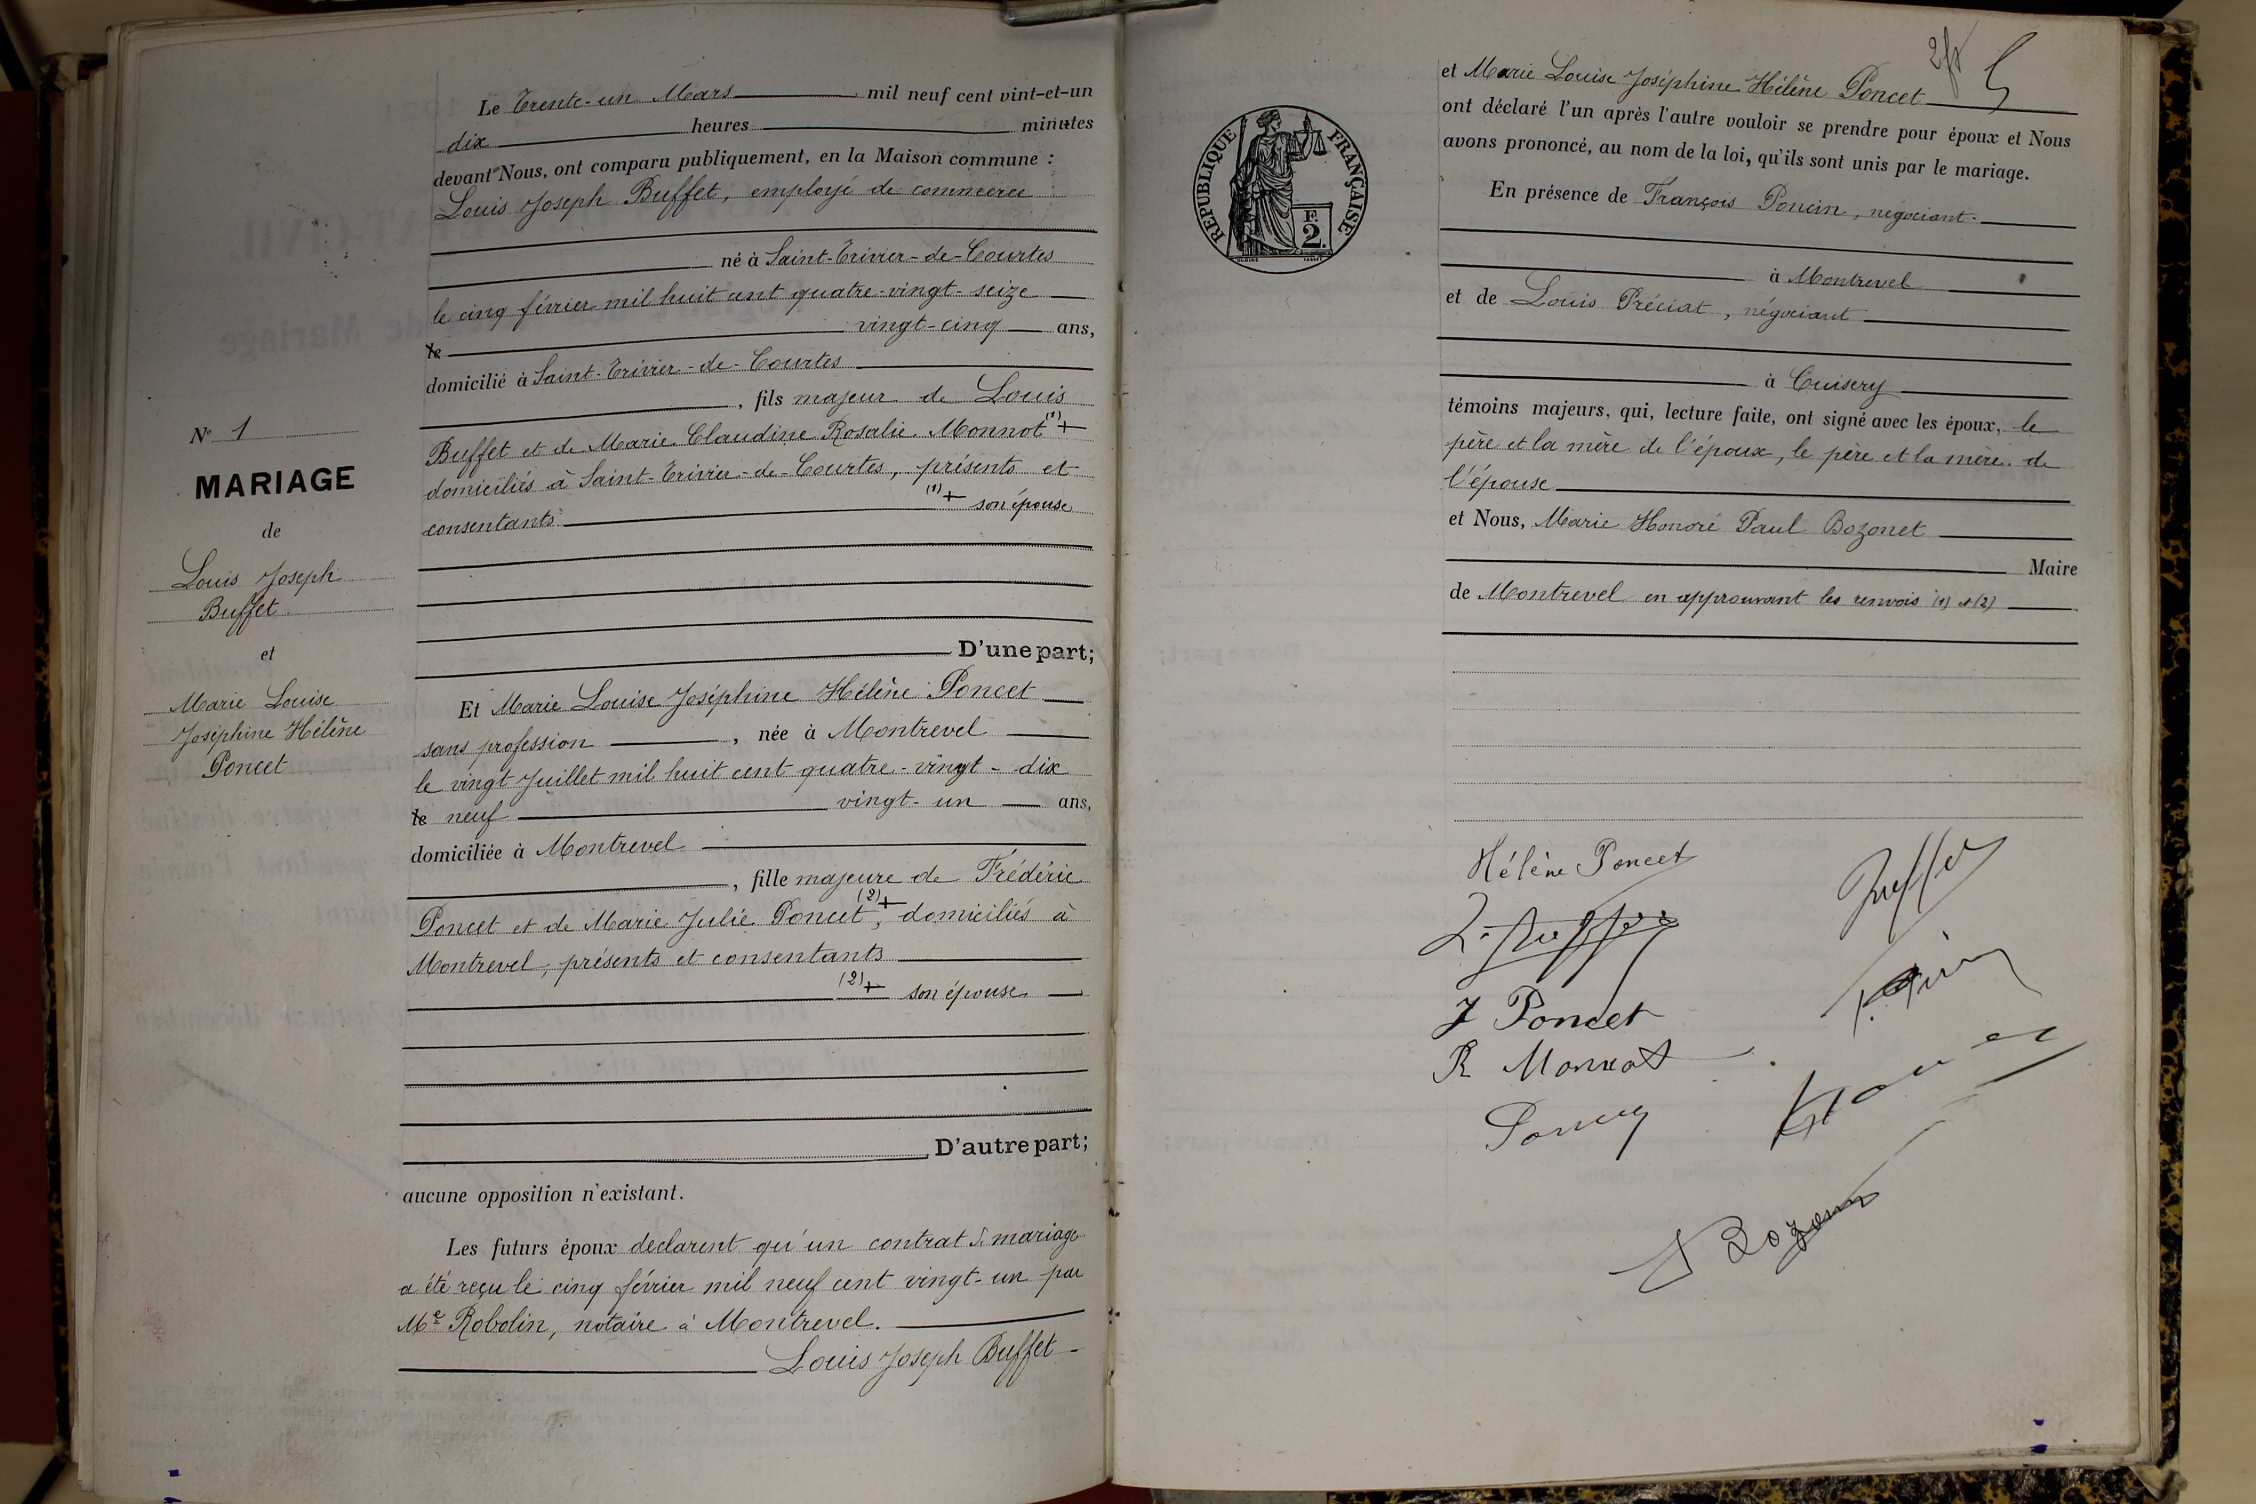 Le Trente-un Mars mil neuf cent vint-et-un
dix heures minutes
devant Nous, ont comparu publiquement, en la Maison commune :
Louis Joseph Buffet, employé de commerce
né à Saint-Trivier-de-Courtes
le cinq février mil huit cent quatre-vingt-seize
le vingt-cinq ans,
domicilié à Saint-Trivier-de-Courtes
, fils majeur de Louis
Buffet et de Marie Claudine Rosalie Monnot (1)+
domiciliés à Saint-Trivier-de-Courtes, présents et
consentants (1)+ son épouse
D'une part;
Et Marie Louise Joséphine Hélène Poncet
sans profession , née à Montrevel
le vingt Juillet mil huit cent quatre-vingt-dix
le neuf vingt-un ans,
domiciliée à Montrevel
, fille majeure de Frédéric
Poncet et de Marie Julie Poncet (2)+, domiciliés à
Montrevel, présents et consentants
(2)+ son épouse
D'autre part;
aucune opposition n'existant.
Les futurs époux déclarent qu'un contrat de mariage
a été reçu le cinq février mil neuf cent vingt-un par
Me Robolin, notaire à Montrevel.
Louis Joseph Buffet
N° 1
MARIAGE
de
Louis Joseph
Buffet
et
Marie Louise
Joséphine Hélène
Poncet
RÉPUBLIQUE FRANÇAISE
F.
2.
et Marie Louise Joséphine Hélène Poncet
ont déclaré l'un après l'autre vouloir se prendre pour époux et Nous
avons prononcé, au nom de la loi, qu'ils sont unis par le mariage.
En présence de François Poncin, négociant
à Montrevel
et de Louis Préciat, négociant
à Cuisery
témoins majeurs, qui, lecture faite, ont signé avec les époux, le
père et la mère de l'époux, le père et la mère de
l'épouse
et Nous, Marie Honoré Paul Bozonet
Maire
de Montrevel en approuvant les renvois (1) et (2)
Hélène Poncet
Buffet
L. Buffet
J Poncet
R Monnot
Poncet
P Bozonet